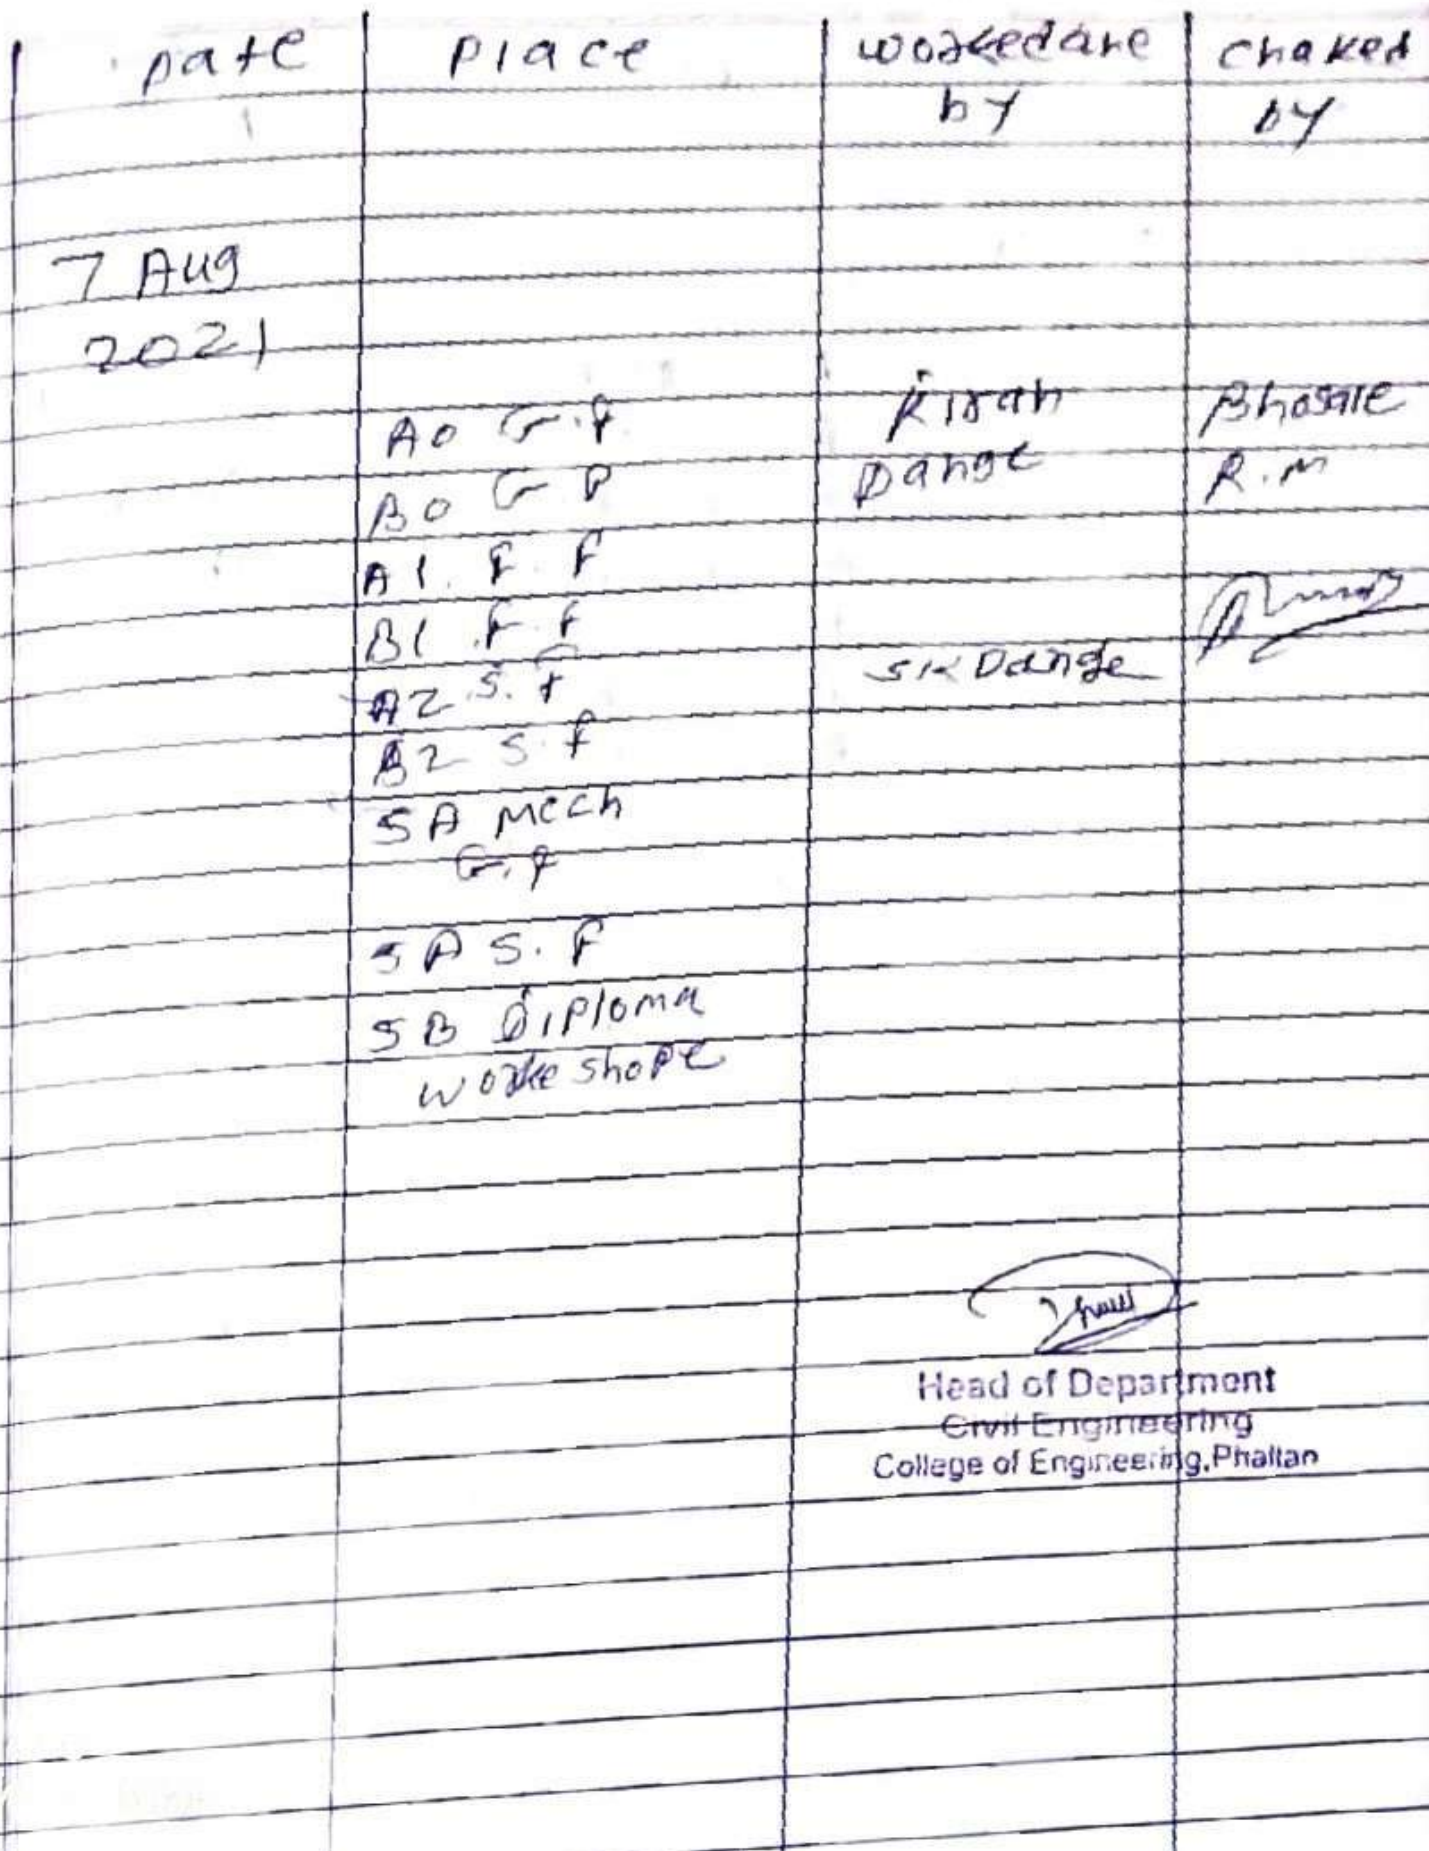 Date Place workedane by chaked by
7 Aug
2021
A0 G.F Kiran Bhosale
B0 G F Dange R.M
A1. F. F
B1 .F. F
A2 S. F SK Dange
B2 S. F
5A Mech
G.F
5A S. F
5B Diploma
worke shope
Head of Department
Civil Engineering
College of Engineering,Phaltan